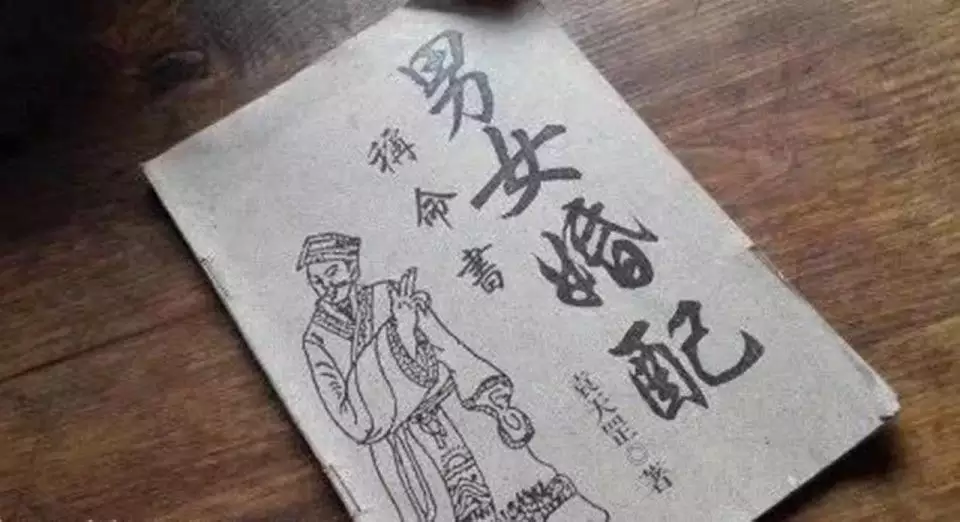 男女婚配
稱命書
袁天罡◎著